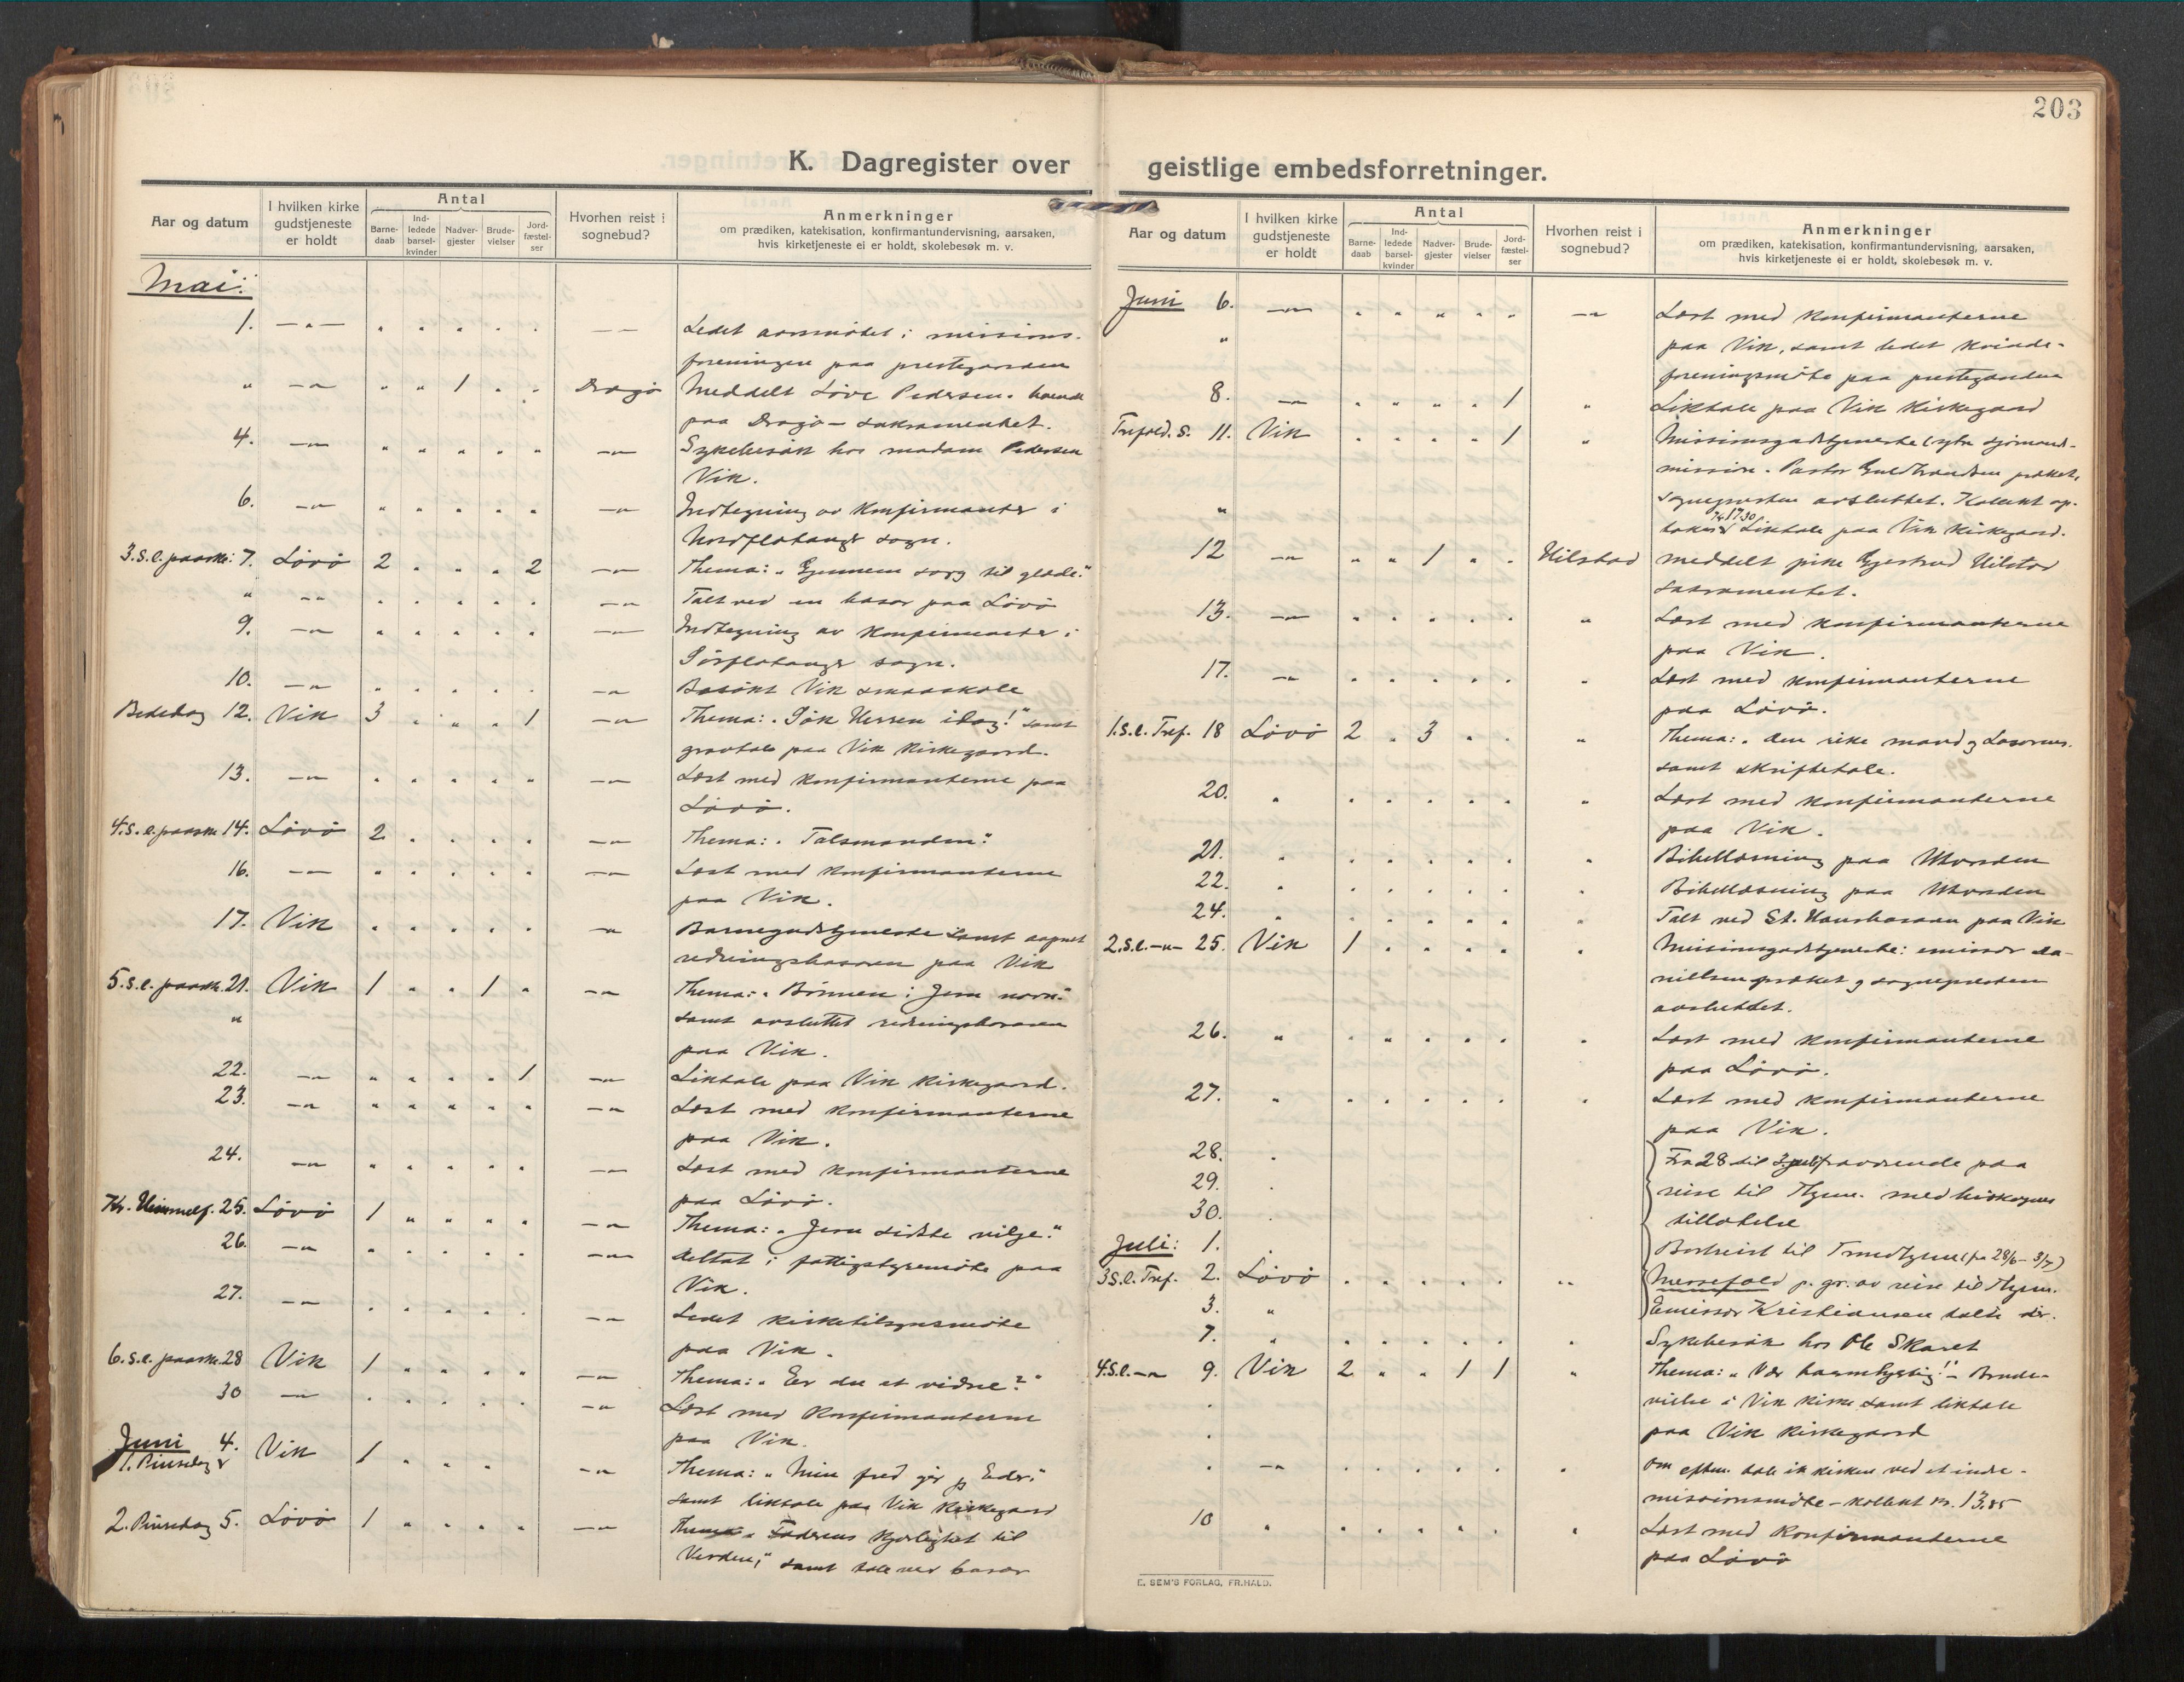 203
K. Dagregister over geistlige embedsforretninger.
Aar og datum
I hvilken kirke gudstjeneste er holdt
Antal
Barne-daab
Ind-ledede barsel-kvinder
Nadver-gjester
Brude-vielser
Jord-fæstel-ser
Hvorhen reist i sognebud?
Anmerkninger
om prædiken, katekisation, konfirmantundervisning, aarsaken,
hvis kirketjeneste ei er holdt, skolebesøk m. v.
Mai:
1. —„— „ „ „ „ „ —„— Ledet aarsmötet i missions-
foreningen paa prestegaarden
„ —„— „ „ 1 „ „ Dragö Meddelt Löve Pedersen, boende
paa Dragö – sakramentet.
4. —„— „ „ „ „ „ —„— Sykebesök hos madam Pedersen
Vik.
6. —„— „ „ „ „ „ —„— Indtegning av konfirmanter i
Nordflatanger sogn.
3. S. e. paaske: 7. Lövö 2 „ „ „ 2 —„— Thema: „Gjennem sorg til glæde."
„ —„— „ „ „ „ „ —„— Talt ved en basar paa Lövö
9. —„— „ „ „ „ „ —„— Indtegning av konfirmanter i
Sörflatanger sogn.
10. —„— „ „ „ „ „ —„— Besökt Vik smaaskole
Bededag 12. Vik 3 „ „ „ 1 —„— Thema: „Sök Herren idag!" samt
gravtale paa Vik kirkegaard.
13. —„— „ „ „ „ „ —„— Læst med konfirmanterne paa
Lövö.
4. S. e. paaske 14. Lövö 2 „ „ „ „ —„— Thema: „Talsmanden."
16. —„— „ „ „ „ „ —„— Læst med konfirmanterne
paa Vik.
17. Vik „ „ „ „ „ —„— Barnegudstjeneste samt aapnet
redningsbasaren paa Vik
5. S. e. paaske 21. Vik 1 „ „ 1 „ —„— Thema: „Bönnen i Jesu navn."
„ samt avsluttet redningsbasaren
paa Vik.
22. —„— „ „ „ „ 1 —„— Liktale paa Vik kirkegaard.
23. —„— „ „ „ „ „ —„— Læst med konfirmanterne
paa Vik.
24. —„— „ „ „ „ „ —„— Læst med konfirmanterne
paa Lövö.
Kr. Himmelf. 25. Lövö 1 „ „ „ „ —„— Thema: „Jesu sidste vilje."
26. —„— „ „ „ „ „ —„— Deltat i fattigstyremöte paa
Vik.
27. —„— „ „ „ „ „ —„— Ledet kirketilsynsmöte
paa Vik.
6. S. e. paaske 28 Vik 1 „ „ „ „ —„— Thema: „Er du et vidne?"
30 —„— „ „ „ „ „ —„— Læst med konfirmanterne
paa Vik.
Juni 4. Vik 1 „ „ „ —„— Thema: „Min fred gir jeg Eder."
1. Pinsedag samt liktale paa Vik kirkegaard
2. Pinsedag 5. Lövö 1 „ „ „ „ —„— Thema „Faderens kjærlighet til
Verden," samt tale ved basar
Aar og datum
I hvilken kirke gudstjeneste er holdt
Antal
Barne-daab
Ind-ledede barsel-kvinder
Nadver-gjester
Brude-vielser
Jord-fæstel-ser
Hvorhen reist i sognebud?
Anmerkninger
om prædiken, katekisation, konfirmantundervisning, aarsaken,
hvis kirketjeneste ei er holdt, skolebesøk m. v.
Juni 6. —„— „ „ „ „ „ —„— Læst med konfirmanterne
„ paa Vik, samt ledet kvinde-
foreningsmöte paa prestegaarden
8. —„— „ „ „ „ 1 „ Liktale paa Vik kirkegaard
Trefold. S. 11. Vik „ „ „ „ 1 „ Missionsgudstjeneste (ytre sjömands-
mission. Pastor Guldbrandsen præket,
sogneprsten avsluttet. Kollekt op-
„ Liktale paa Vik kirkegaard.
12 —„— „ „ 1 „ „ Hilstad meddelt pike Gjertrud Hilstad
sakramentet.
13. —„— „ „ „ „ „ „ Læst med konfirmanterne
paa Vik.
17. —„— „ „ „ „ „ „ Læst med konfirmanterne
paa Lövö.
1. S. e. Tref. 18 Lövö 2 „ 3 „ „ „ Thema: „den rike mand og Lasarus.
samt skriftetale.
20. „ „ „ „ „ „ „ Læst med konfirmanterne
paa Vik.
21. „ „ „ „ „ „ „ Bibellæsning paa Utvorden
22. „ „ „ „ „ „ „ Bibellæsning paa Utvorden
24. „ „ „ „ „ „ „ Talt ved St. Hansbasaren paa Vik
2. S. e. —„— 25. Vik 1 „ „ „ „ „ Missionsgudstjeneste: emissær Da-
nielsen præket og sognepresten
avsluttet.
26. „ „ „ „ „ „ „ Læst med konfirmanterne
paa Lövö.
27. „ „ „ „ „ „ „ Læst med konfirmanterne
paa Vik.
28. „ Fra 28 til 3 juli fraværende paa
29. „ reise til Thjem. med biskopens
30. „ tillatelse
Juli: 1. „ Bortreist til Trondhjem (fra 28/6 – 3/7)
3 S. e. Tref. 2. Lövö „ „ „ „ „ „ Messefald p. gr. av reise til Thjem.
3. „ Emissær Kristiansen talte der.
7. „ „ „ „ „ „ „ Sykebesök hos Ole Skaret
4. S. e. —„— 9. Vik 2 „ „ 1 1 „ Thema: „Vær barmhjertig!" – Brude-
„ vielse i Vik kirke samt liktale
„ paa Vik kirkegaard
„ —„— „ „ „ „ „ „ Om efterm. tale i kirken ved et indre-
missionsmöte – kollekt kr. 13.85
10 „ „ „ „ „ „ „ Læst med konfirmanterne
paa Lövö
E. SEM'S FORLAG, FR.HALD.